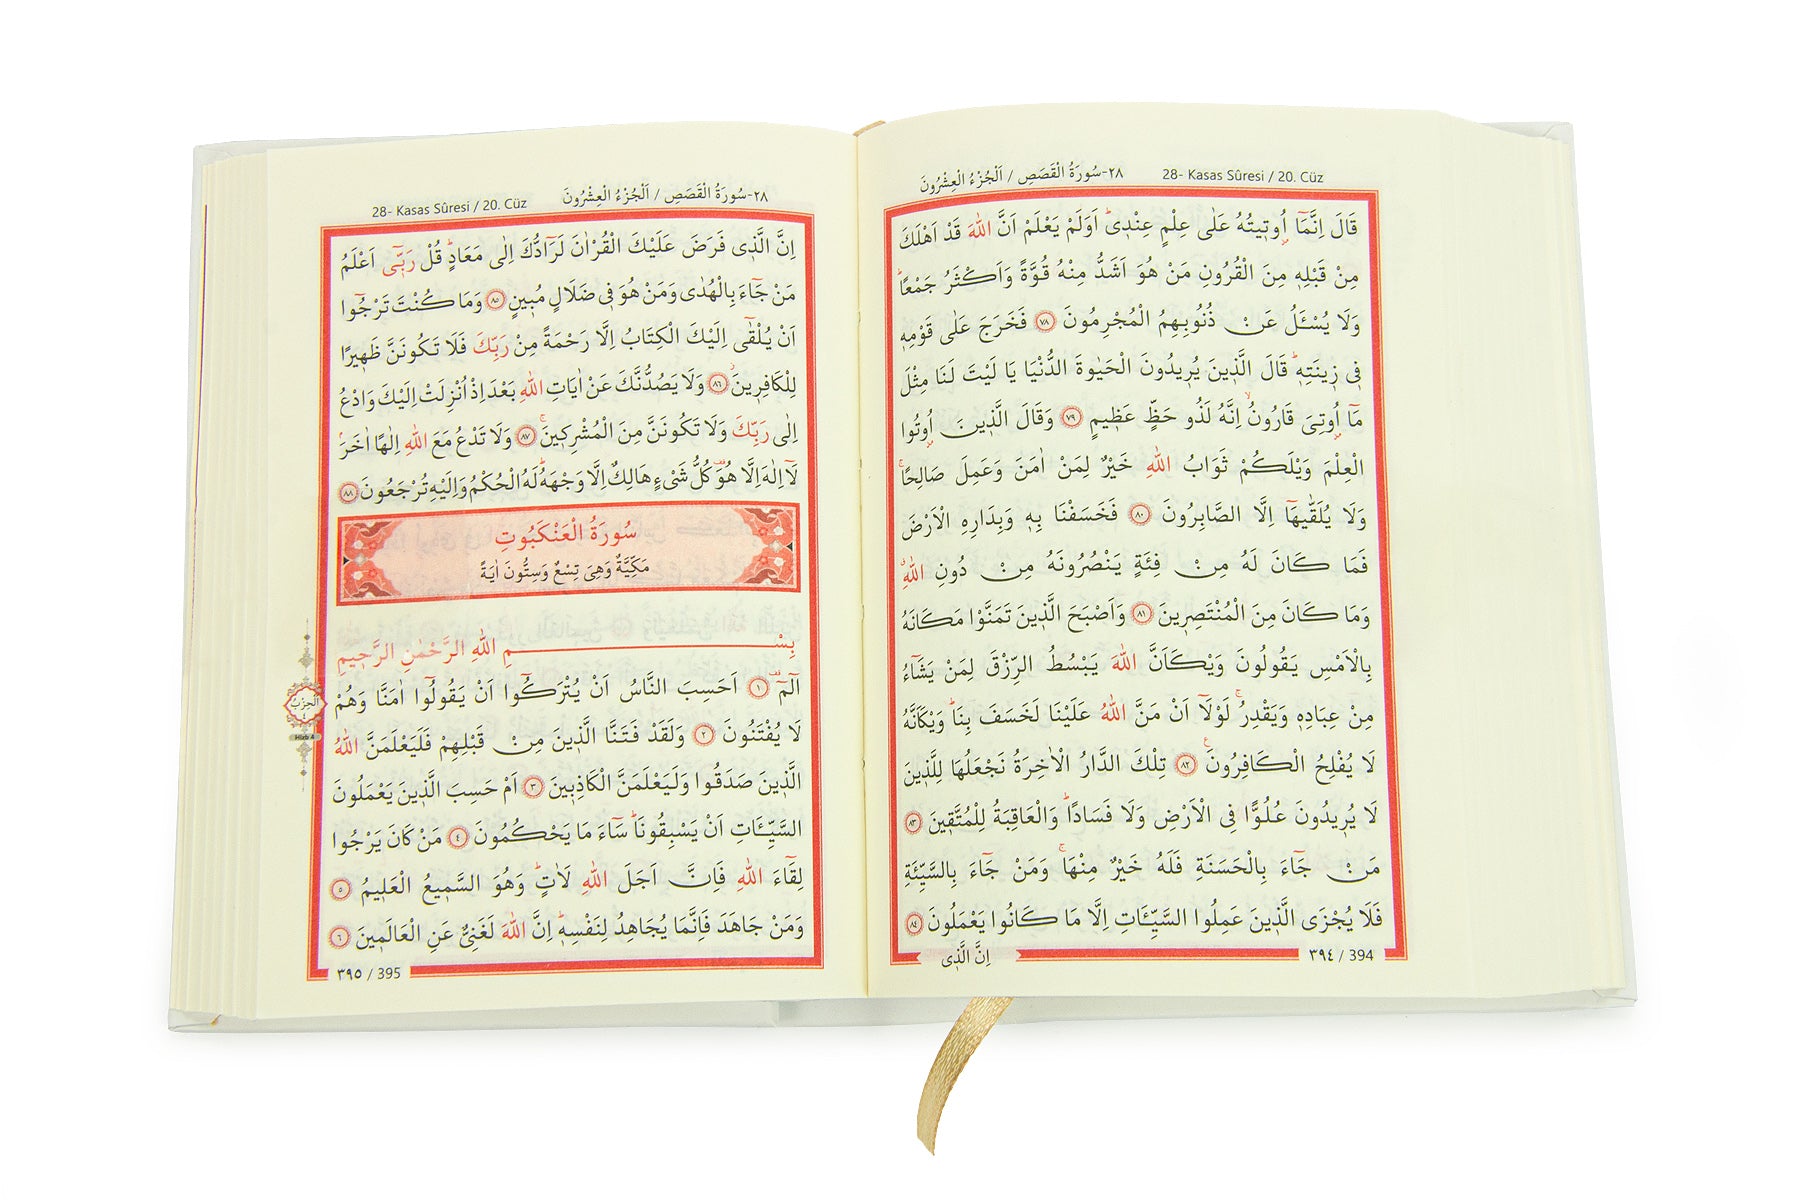 ٢٨-سُورَةُ الْقَصَصِ / اَلْجُزْءُ الْعِشْرُونَ 28- Kasas Sûresi / 20. Cüz
قَالَ اِنَّمَٓا اُو۫ت۪يتُهُ عَلٰى عِلْمٍ عِنْد۪يۜ اَوَلَمْ يَعْلَمْ اَنَّ اللّٰهَ قَدْ اَهْلَكَ
مِنْ قَبْلِه۪ مِنَ الْقُرُونِ مَنْ هُوَ اَشَدُّ مِنْهُ قُوَّةً وَاَكْثَرُ جَمْعًاۜ
وَلَا يُسْـَٔلُ عَنْ ذُنُوبِهِمُ الْمُجْرِمُونَ ﴿٧٨﴾ فَخَرَجَ عَلٰى قَوْمِه۪
ف۪ي ز۪ينَتِه۪ۜ قَالَ الَّذ۪ينَ يُر۪يدُونَ الْحَيٰوةَ الدُّنْيَا يَا لَيْتَ لَنَا مِثْلَ
مَٓا اُو۫تِيَ قَارُونُۙ اِنَّهُ لَذُو حَظٍّ عَظ۪يمٍ ﴿٧٩﴾ وَقَالَ الَّذ۪ينَ اُو۫تُوا
الْعِلْمَ وَيْلَكُمْ ثَوَابُ اللّٰهِ خَيْرٌ لِمَنْ اٰمَنَ وَعَمِلَ صَالِحًاۚ
وَلَا يُلَقّٰيهَٓا اِلَّا الصَّابِرُونَ ﴿٨٠﴾ فَخَسَفْنَا بِه۪ وَبِدَارِهِ الْاَرْضَ
فَمَا كَانَ لَهُ مِنْ فِئَةٍ يَنْصُرُونَهُ مِنْ دُونِ اللّٰهِۗ
وَمَا كَانَ مِنَ الْمُنْتَصِر۪ينَ ﴿٨١﴾ وَاَصْبَحَ الَّذ۪ينَ تَمَنَّوْا مَكَانَهُ
بِالْاَمْسِ يَقُولُونَ وَيْكَاَنَّ اللّٰهَ يَبْسُطُ الرِّزْقَ لِمَنْ يَشَٓاءُ
مِنْ عِبَادِه۪ وَيَقْدِرُۚ لَوْلَٓا اَنْ مَنَّ اللّٰهُ عَلَيْنَا لَخَسَفَ بِنَاۜ وَيْكَاَنَّهُ
لَا يُفْلِحُ الْكَافِرُونَ۟ ﴿٨٢﴾ تِلْكَ الدَّارُ الْاٰخِرَةُ نَجْعَلُهَا لِلَّذ۪ينَ
لَا يُر۪يدُونَ عُلُوًّا فِي الْاَرْضِ وَلَا فَسَادًاۜ وَالْعَاقِبَةُ لِلْمُتَّق۪ينَ ﴿٨٣﴾
مَنْ جَٓاءَ بِالْحَسَنَةِ فَلَهُ خَيْرٌ مِنْهَاۚ وَمَنْ جَٓاءَ بِالسَّيِّئَةِ
فَلَا يُجْزَى الَّذ۪ينَ عَمِلُوا السَّيِّـَٔاتِ اِلَّا مَا كَانُوا يَعْمَلُونَ ﴿٨٤﴾
٣٩٤ / 394
اِنَّ الَّذ۪ي
28- Kasas Sûresi / 20. Cüz ٢٨-سُورَةُ الْقَصَصِ / اَلْجُزْءُ الْعِشْرُونَ
اِنَّ الَّذ۪ي فَرَضَ عَلَيْكَ الْقُرْاٰنَ لَرَٓادُّكَ اِلٰى مَعَادٍۜ قُلْ رَبّ۪ٓي اَعْلَمُ
مَنْ جَٓاءَ بِالْهُدٰى وَمَنْ هُوَ ف۪ي ضَلَالٍ مُب۪ينٍ ﴿٨٥﴾ وَمَا كُنْتَ تَرْجُٓوا
اَنْ يُلْقٰٓى اِلَيْكَ الْكِتَابُ اِلَّا رَحْمَةً مِنْ رَبِّكَ فَلَا تَكُونَنَّ ظَه۪يرًا
لِلْكَافِر۪ينَۘ ﴿٨٦﴾ وَلَا يَصُدُّنَّكَ عَنْ اٰيَاتِ اللّٰهِ بَعْدَ اِذْ اُنْزِلَتْ اِلَيْكَ وَادْعُ
اِلٰى رَبِّكَ وَلَا تَكُونَنَّ مِنَ الْمُشْرِك۪ينَۚ ﴿٨٧﴾ وَلَا تَدْعُ مَعَ اللّٰهِ اِلٰهًا اٰخَرَۢ
لَٓا اِلٰهَ اِلَّا هُوَ۠ كُلُّ شَيْءٍ هَالِكٌ اِلَّا وَجْهَهُۜ لَهُ الْحُكْمُ وَاِلَيْهِ تُرْجَعُونَ ﴿٨٨﴾
سُورَةُ الْعَنْكَبُوتِ
مَكِّيَّةٌ وَهِيَ تِسْعٌ وَسِتُّونَ اٰيَةً
بِسْمِ اللّٰهِ الرَّحْمٰنِ الرَّح۪يمِ
الٓمٓ۠ ﴿١﴾ اَحَسِبَ النَّاسُ اَنْ يُتْرَكُٓوا اَنْ يَقُولُٓوا اٰمَنَّا وَهُمْ
لَا يُفْتَنُونَ ﴿٢﴾ وَلَقَدْ فَتَنَّا الَّذ۪ينَ مِنْ قَبْلِهِمْ فَلَيَعْلَمَنَّ اللّٰهُ
الَّذ۪ينَ صَدَقُوا وَلَيَعْلَمَنَّ الْكَاذِب۪ينَ ﴿٣﴾ اَمْ حَسِبَ الَّذ۪ينَ يَعْمَلُونَ
السَّيِّـَٔاتِ اَنْ يَسْبِقُونَاۜ سَٓاءَ مَا يَحْكُمُونَ ﴿٤﴾ مَنْ كَانَ يَرْجُوا
لِقَٓاءَ اللّٰهِ فَاِنَّ اَجَلَ اللّٰهِ لَاٰتٍۜ وَهُوَ السَّم۪يعُ الْعَل۪يمُ ﴿٥﴾
وَمَنْ جَاهَدَ فَاِنَّمَا يُجَاهِدُ لِنَفْسِه۪ۜ اِنَّ اللّٰهَ لَغَنِيٌّ عَنِ الْعَالَم۪ينَ ﴿٦﴾
اَلْحِزْبُ
٤
Hizb 4
٣٩٥ / 395